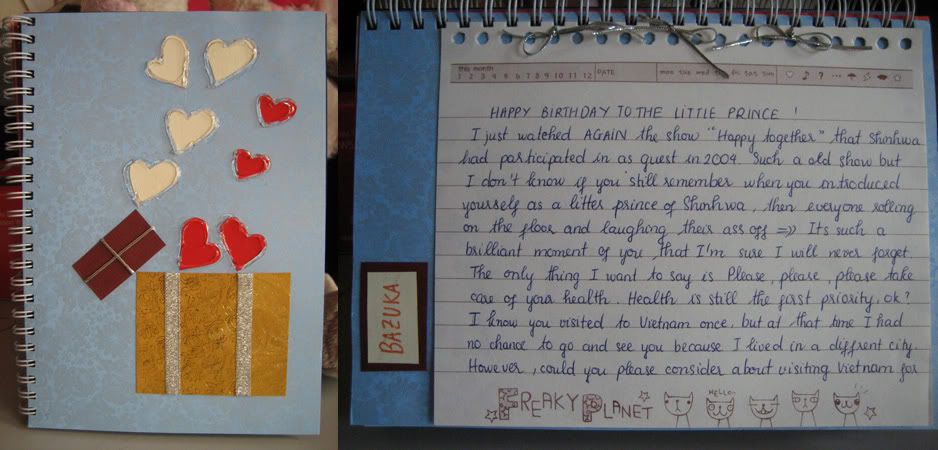 this month
1 2 3 4 5 6 7 8 9 10 11 12 DATE mon tue wed thu fri sat sun
HAPPY BIRTHDAY TO THE LITTLE PRINCE !
I just watched AGAIN the show "Happy together" that Shinhwa
had participated in as guest in 2004. Such a old show but
I don't know if you still remember when you introduced
yourself as a litter prince of Shinhwa, then everyone rolling
on the floor and laughing their ass off =)) Its such a
brilliant moment of you, that I'm sure I will never forget.
The only thing I want to say is Please, please, please take
care of your health. Health is still the first priority, ok?
I know you visited to Vietnam once, but at that time I had
no chance to go and see you because I lived in a diffrent city.
However, could you please consider about visiting Vietnam for
BAZUKA
HELLO!
FREAKY PLANET